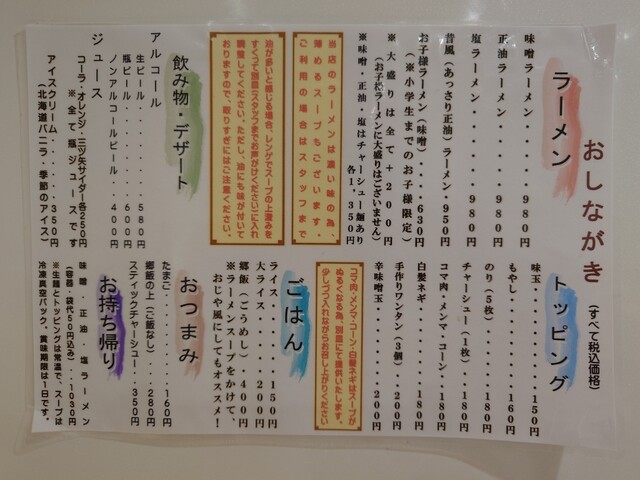 おしながき
(すべて税込価格)
ラーメン
味噌ラーメン・・・・・980円
正油ラーメン・・・・・980円
塩ラーメン・・・・・・980円
昔風(あっさり正油)ラーメン・950円
お子様ラーメン(味噌)・・・・630円
(※小学生までのお子様限定)
※大盛りは全て+200円
(お子様ラーメンに大盛りはございません)
※味噌・正油・塩はチャーシュー麺あり
各1,350円
当店のラーメンは濃い味の為、
薄めるスープもございます。
ご利用の場合はスタッフまで
油が多いと感じる場合、レンゲでスープの上澄みを
すくって別皿(スタッフまでお声がけください)に入れ
調整してください。ただし、油にも味が付いて
おりますので、取りすぎにはご注意ください。
飲み物・デザート
アルコール
生ビール・・・・・・・580円
瓶ビール・・・・・・・600円
ノンアルコールビール・・400円
ジュース
コーラ・オレンジ・三ツ矢サイダー各250円
※全て瓶ジュースです
アイスクリーム・・・・350円
(北海道バニラ・季節のアイス)
トッピング
味玉・・・・・・・・・150円
もやし・・・・・・・・160円
のり(5枚)・・・・・・180円
チャーシュー(1枚)・・・180円
コマ肉・メンマ・コーン・180円
白髪ネギ・・・・・・・180円
手作りワンタン(3個)・・200円
辛味噌玉・・・・・・・200円
コマ肉・メンマ・コーン・白髪ネギはスープが
ぬるくなる為、別皿にて提供いたします。
少しづつ入れながらお召し上がりください
ごはん
ライス・・・・・150円
大ライス・・・・200円
郷飯(ごうめし)・・400円
※ラーメンスープをかけて、
おじや風にしてもオススメ!
おつまみ
たまご・・・・・・・・160円
郷飯の上(ご飯なし)・・280円
スティックチャーシュー・350円
お持ち帰り
味噌 正油 塩ラーメン
(容器・袋代50円込み)・・1030円
※生麺とトッピングは常温で、スープは
冷凍真空パック、賞味期限は1日です。